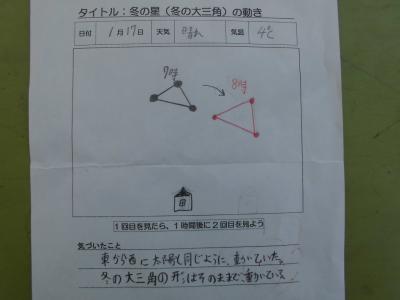 タイトル：冬の星（冬の大三角）の動き
日付 1月17日 天気 晴れ 気温 4℃
7時
8時
1回目を見たら、1時間後に2回目を見よう
気づいたこと
東から西に太陽と同じように、動いていた。
冬の大三角の形はそのままで動いている